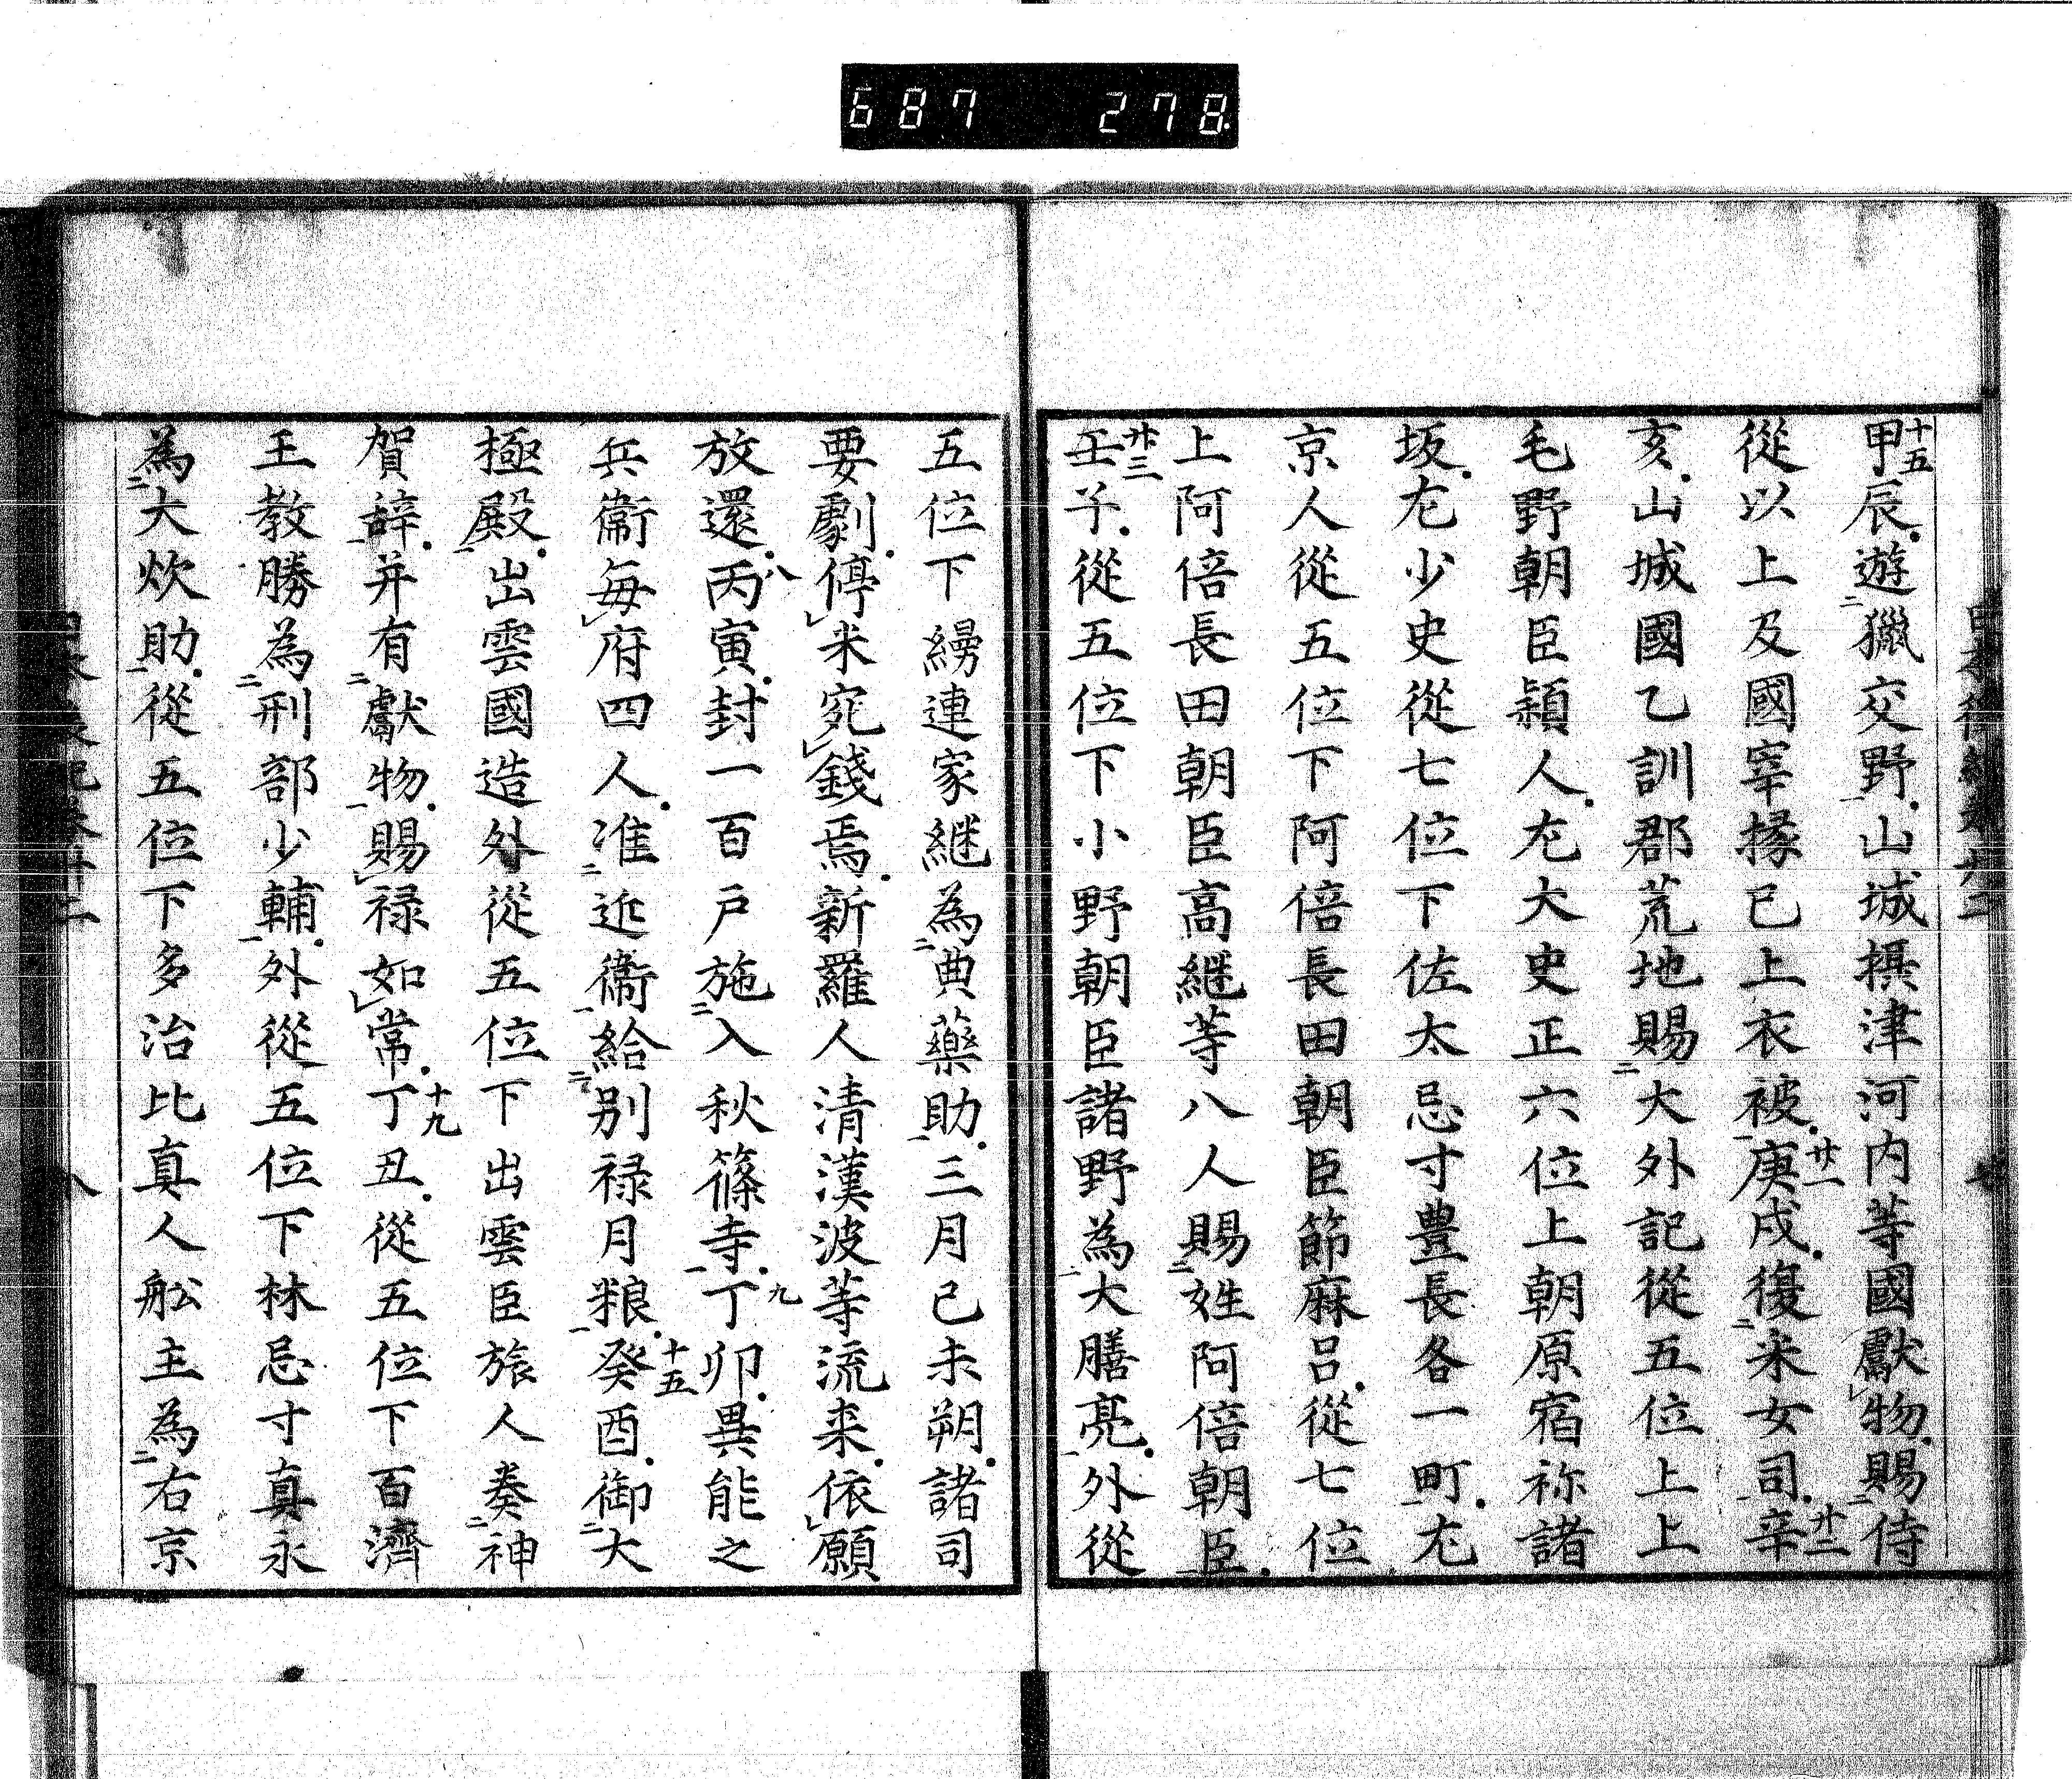 687 278
甲辰遊獵交野山城摂津河内等國獻物賜侍
從以上及國宰掾已上衣被庚戌復采女司辛
亥山城國乙訓郡荒地賜大外記從五位上上
毛野朝臣穎人尢大史正六位上朝原宿祢諸
坂尢少史從七位下佐太忌寸豊長各一町尢
京人從五位下阿倍長田朝臣節麻呂從七位
上阿倍長田朝臣高継等八人賜姓阿倍朝臣
壬子從五位下小野朝臣諸野為大膳亮外從
五位下縵連家継為典藥助三月己未朔諸司
要劇停米宛錢焉新羅人清漢波等流来依願
放還丙寅封一百戸施入秋篠寺丁卯異能之
兵衞毎府四人准近衞給別禄月粮癸酉御大
極殿出雲國造外從五位下出雲臣旅人奏神
賀辭并有獻物賜禄如常丁丑從五位下百濟
王教勝為刑部少輔外從五位下林忌寸真永
為大炊助從五位下多治比真人舩主為右京
八